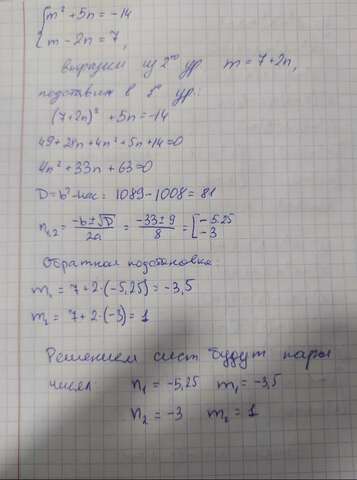 { m² + 5n = -14
m - 2n = 7,
выразим из 2го ур m = 7 + 2n,
подставим в 1е ур:
(7+2n)² + 5n = -14
49 + 28n + 4n² + 5n + 14 = 0
4n² + 33n + 63 = 0
D = b² - 4ac = 1089 - 1008 = 81
n₁,₂ = (-b ± √D)/2a = (-33 ± 9)/8 = [ -5.25 -3
Обратная подстановка:
m₁ = 7 + 2·(-5,25) = -3,5
m₂ = 7 + 2·(-3) = 1
Решением сист будут пары
чисел n₁ = -5,25 m₁ = -3,5
n₂ = -3 m₂ = 1